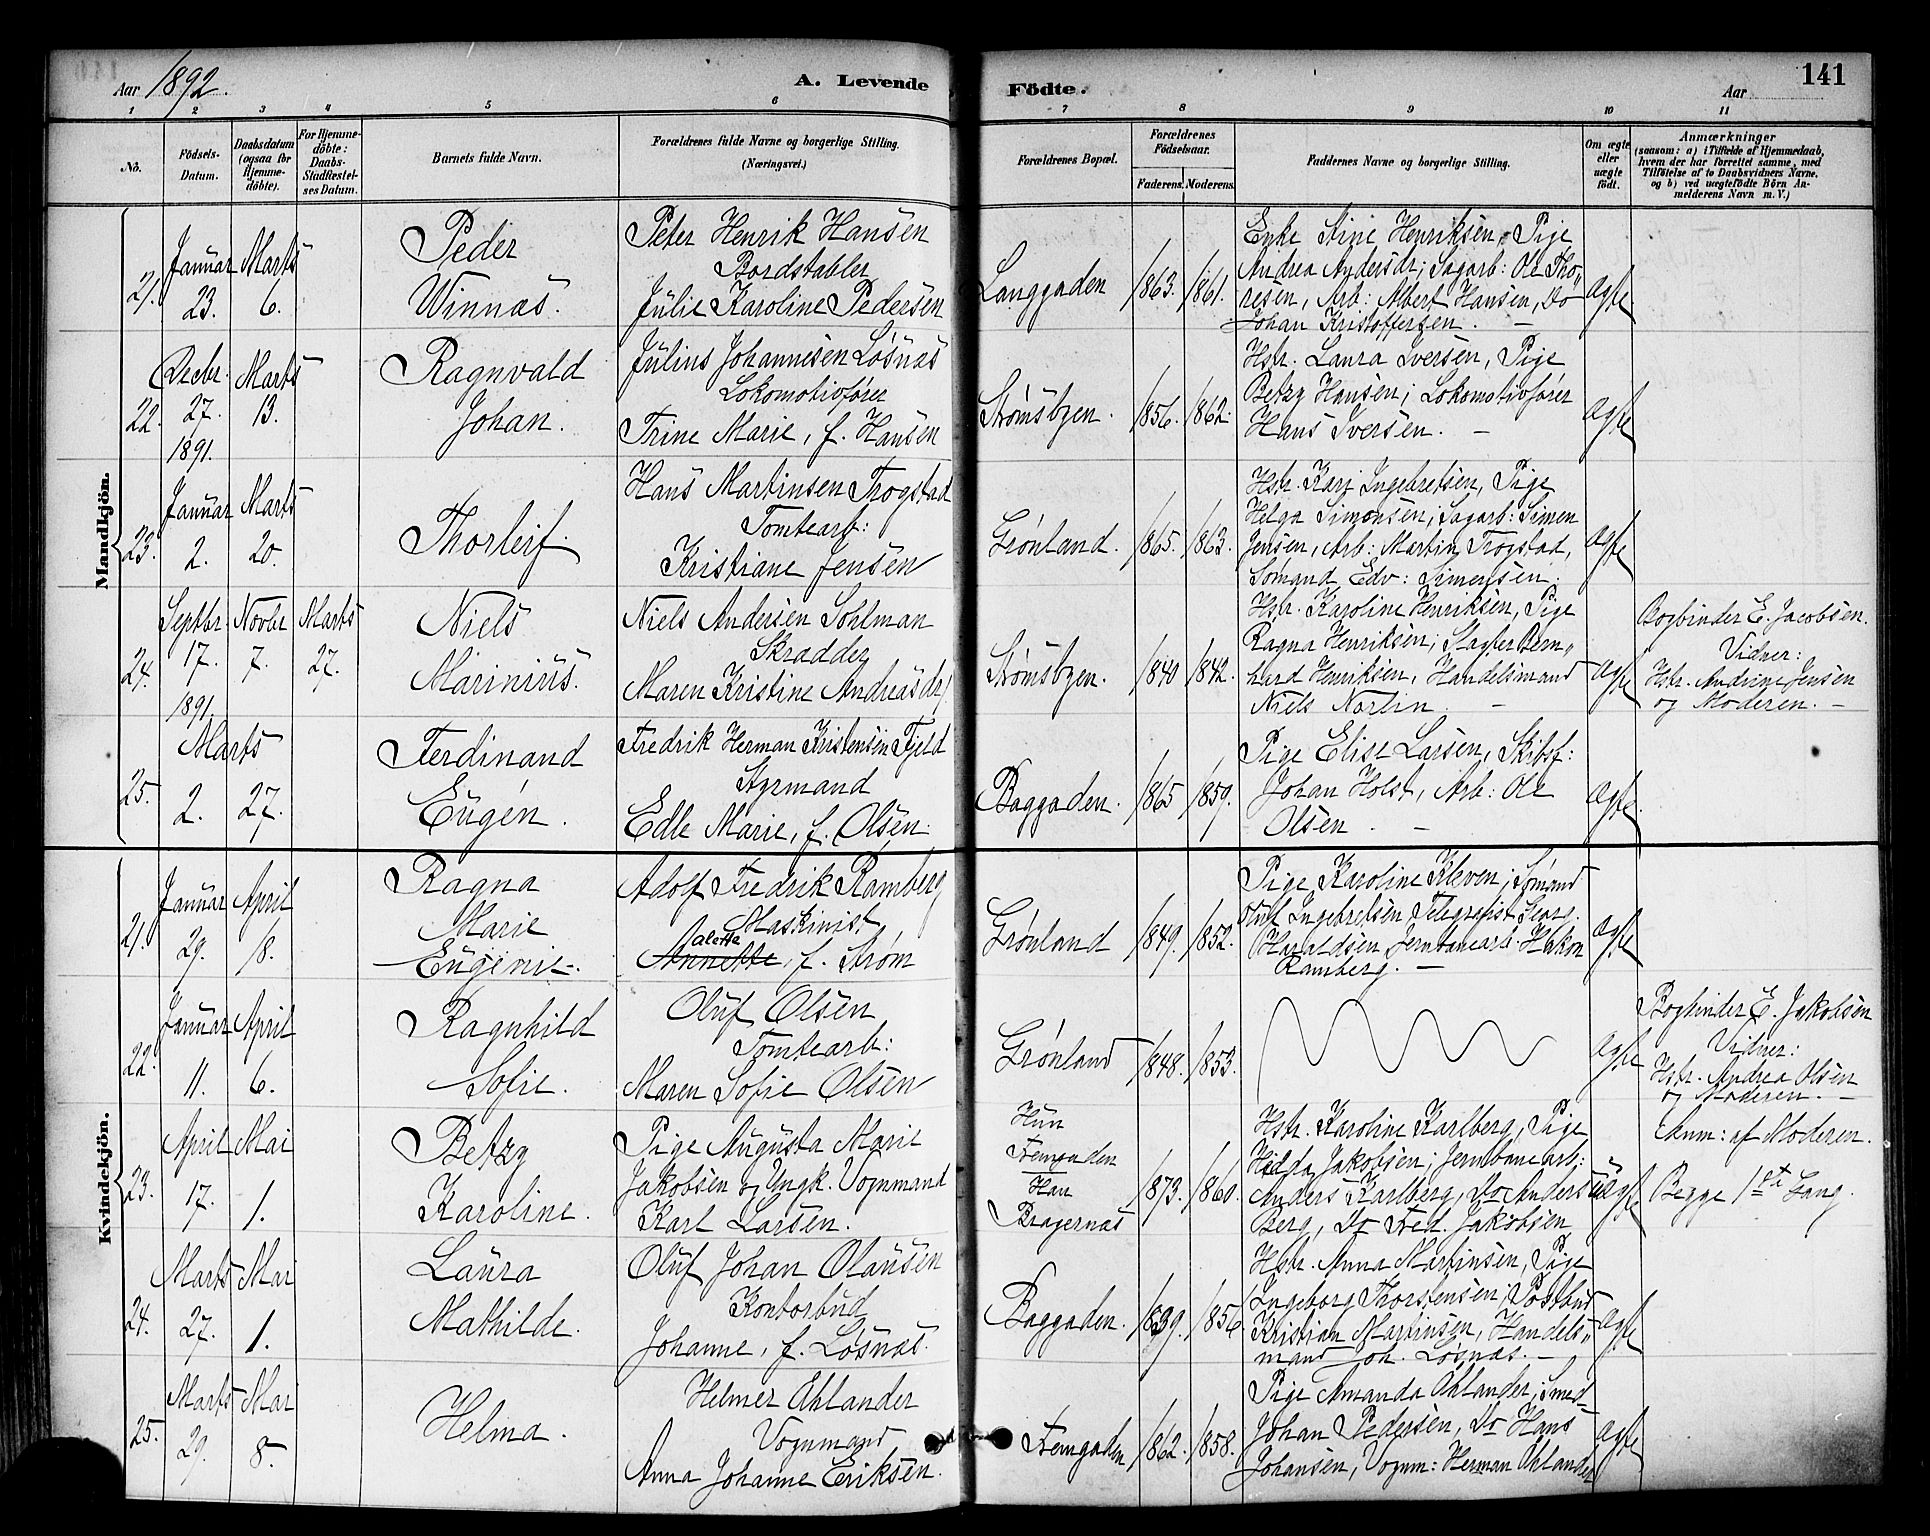 Aar 1892.
A. Levende
Födte.
Aar
141
1 2 3 4 5 6 7 8 9 10 11
No.
Födsels-Datum.
Daabsdatum (ogsaa for Hjemmedöbte).
For Hjemmedöbte: Daabs-Stadfæstelses Datum.
Barnets fulde Navn.
Forældrenes fulde Navne og borgerlige Stilling.
(Næringsvei.)
Forældrenes Bopæl.
Forældrenes Födselsaar.
Faderens. Moderens.
Faddernes Navne og borgerlige Stilling.
Om ægte eller uægte födt.
Anmærkninger
(saasom: a) i Tilfælde af Hjemmedaab, hvem der har forrettet samme, med Tilföielse af to Daabsvidners Navne, og b) ved uægtefödte Börn Anmelderens Navn m. V.)
Mandkjön.
21. Januar 23. Marts 6.
Peder
Winnæs.
Peter Henrik Hansen
Bordstabler
Julie Karoline Pedersen
Langgaden 1863. 1861.
Enke Aine Henriksen, Pige
Andrea Andersdr; Sagarb: Ole Tho„
resen, Arb: Albert Hansen, Do
Johan Kristoffersen. —
ægte
22. Decbr. 27. 1891. Marts 13.
Ragnvald
Johan.
Julius Johannesen Løsnæs
Lokomotivfører
Trine Marie, f. Hansen
Strømsbyen. 1856. 1862.
Hstr. Laura Iversen, Pige
Betzy Hansen; Lokomotivfører
Hans Iversen. —
ægte
23. Januar 2. Marts 20.
Thorleif.
Hans Martinsen Trogstad
Tomtearb:
Kristiane Jensen
Grønland. 1865. 1863.
Hstr. Kari Ingebretsen, Pige
Helga Simonsen; Sagarb: Simen
Jensen, Arb: Martin Trogstad,
Sømand Edv: Simensen.
ægte
24. Septbr. 17. 1891 Novbr 7. Marts 27.
Niels
Marinius.
Niels Andersen Sohlman
Skrædder
Maren Kristine Andreasdr
Strømsbyen. 1840 1842.
Hstr. Karoline Henriksen, Pige
Ragna Henriksen; Slagter Bern„
hard Henriksen, Handelsmand
Niels Norlin. —
ægte
Bogbinder E. Jacobsen.
Vidner:
Hstr. Andrine Jensen
og Moderen. —
25. Marts 2. 27.
Ferdinand
Eugén.
Fredrik Herman Kristensen Fjeld
Styrmand
Edle Marie, f. Olsen.
Baggaden. 1865 1859.
Pige Elise Larsen, Skibsf:
Johan Holst, Arb: Ole
Olsen. —
ægte
Kvindekjön.
21. Januar 29. April 18.
Ragna
Marie
Eugenie.
Adolf Fredrik Ramberg
Maskinist
Annette, f. Strøm
Grønland 1849. 1852.
Pige Karoline Kleven; Sømand
Oluf Ingebretsen, Telegrafist Georg
Haraldsen Jernbanearb. Hakon
Ramberg. —
ægte
22. Januar 11. April 6.
Ragnhild
Sofie.
Oluf Olsen
Tomtearb:
Maren Sofie Olsen
Grønland 1848. 1853.
ægte
Bogbinder E. Jakobsen
Vidner:
Hstr. Andrea Olsen
og Moderen. —
23. April 17. Mai 1.
Betzy
Karoline.
Pige Augusta Marie
Jakobsen og Ungk. Vognmand
Karl Larsen.
Hun
Femgaden
Han
Bragernæs
1873. 1860.
Hstr. Karoline Karlberg, Pige
Hilda Jakobsen; Jernbanearb:
Anders Karlberg, Do Anders
Berg, Do Fred. Jakobsen
uægte
Anm: af Moderen.
Begge 1ste Gang.
24. Marts 27. Mai 1.
Laura
Mathilde.
Oluf Johan Olausen
Kontorbud
Johanne, f. Løsnæs.
Baggaden. 1839. 1856.
Hstr. Anna Martinsen, Pige
Ingeborg Thorstensen; Postbud
Kristian Martinsen, Handels„
mand Joh. Løsnæs. —
ægte
25. Marts 29. Mai 8.
Helma.
Helmer Uhlander
Vognmand
Anna Johanne Eriksen.
Femgaden 1862. 1858.
Pige Amanda Uhlander; Smed
Johan Pedersen, Do Hans
Johansen, Vognm: Herman Uhlander
ægte